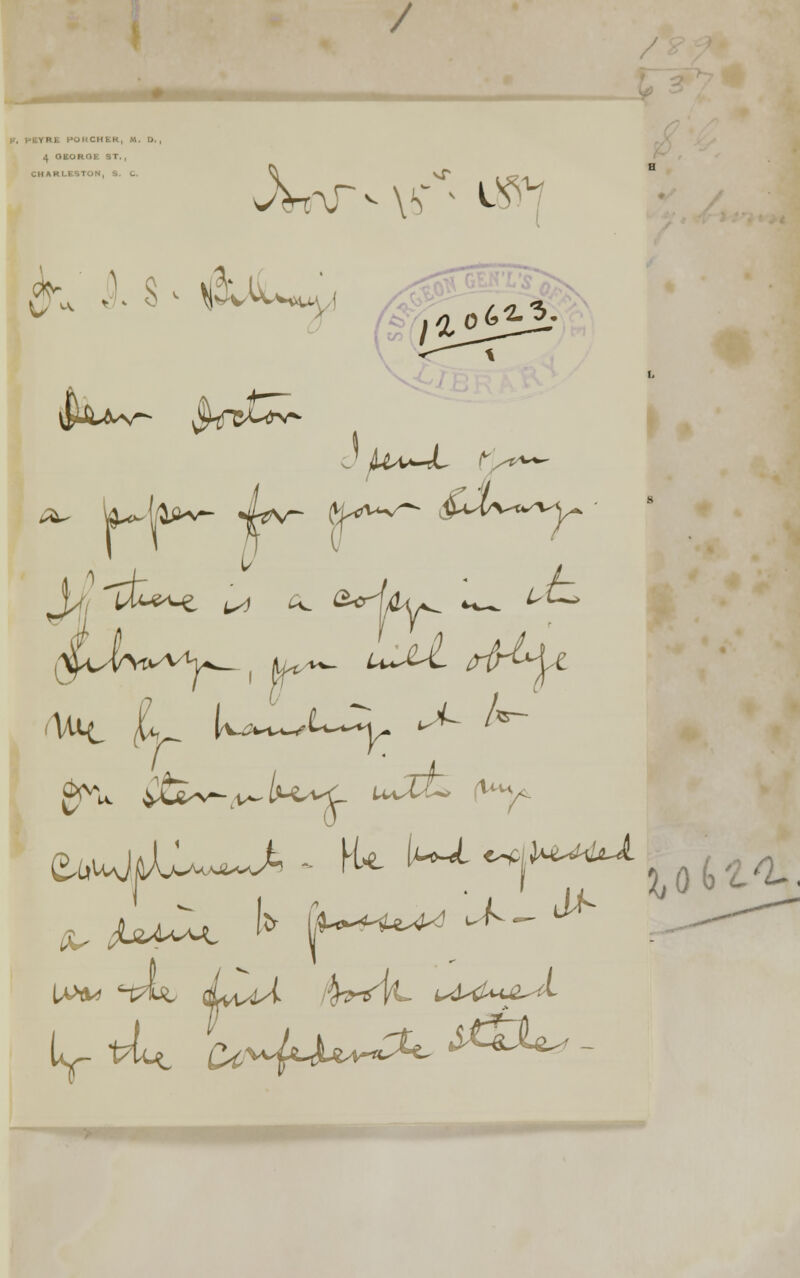 /
189
637
F. PEYRE PORCHER, M. D.,
4 GEORGE ST.,
CHARLESTON, S. C.
Nov. 15. 1887
Dr. J. S. Billings
SURGEON GEN'L'S OFFICE
120623.
LIBRARY
Dear Doctor
I send you
a paper for your Library.
If there is a copy in the
Library, you will oblige
me by handing it to
Dr Sternberg with my
Compliments - He had expressed
a desire to possess it - It
was the first book issued
by the Confederate States -
H
L
S
20622.